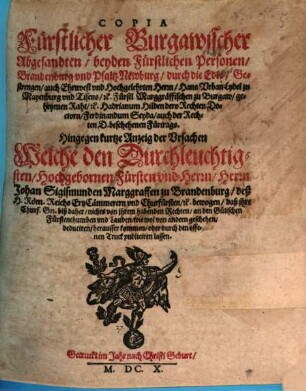 COPIA
Fürstlicher Burgawischer
Abgesandten / beyden Fürstlichen Personen /
Brandenburg vnd Pfaltz Newburg / durch die Edle / Ge-
strengen / auch Ehrnvest vnd Hochgelehrten Herrn / Hans Vrban Lydel zu
Mayenburg vnd Tisens / ꝛc. Fürstl. Marggräffischen zu Burgaw / ge-
heymen Raht / ꝛc. Hadrianum Hilden dero Rechten Do-
ctorn / Ferdinandum Seyda / auch der Rech-
ten D. beschehenen Fürtrags.
Hingegen kurtze Anzeig der Vrsachen
Welche den Durchleuchtig-
sten / Hochgebornen Fürsten vnd Herrn / Herrn
Johan Sigismunden Marggraffen zu Brandenburg / deß
H. Röm. Reichs Ertz Cämmerern vnd Churfürsten / ꝛc. bewogen / daß ihre
Churf. Gn. biß daher / nichts von ihrem habenden Rechten / an den Gülischen
Fürstenthumben vnd Landen / wie wol von andern geschehen /
deduciren / heraußer kommen / oder durch den offe-
nen Truck publiciren lassen.
Getruckt im Jahr nach Christi Geburt /
M. DC. X.